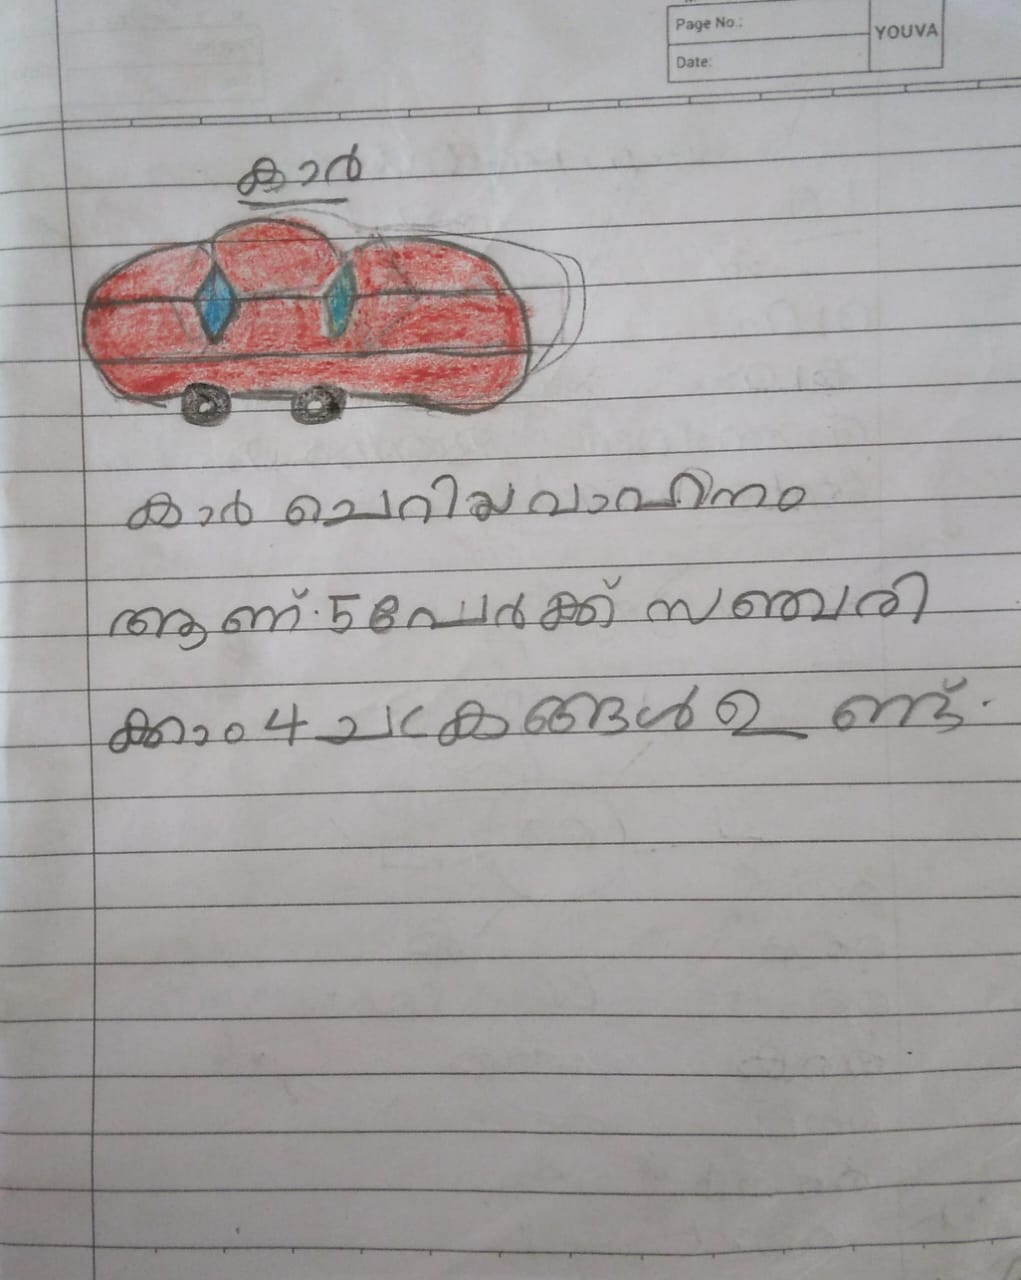 Page No.:
YOUVA
Date:
കാർ
കാർ ചെറിയ വാഹിനം
ആണ്. 5 പേർക്ക് സഞ്ചരി
ക്കാം 4 ചക്രങ്ങൾ ഉണ്ട്.